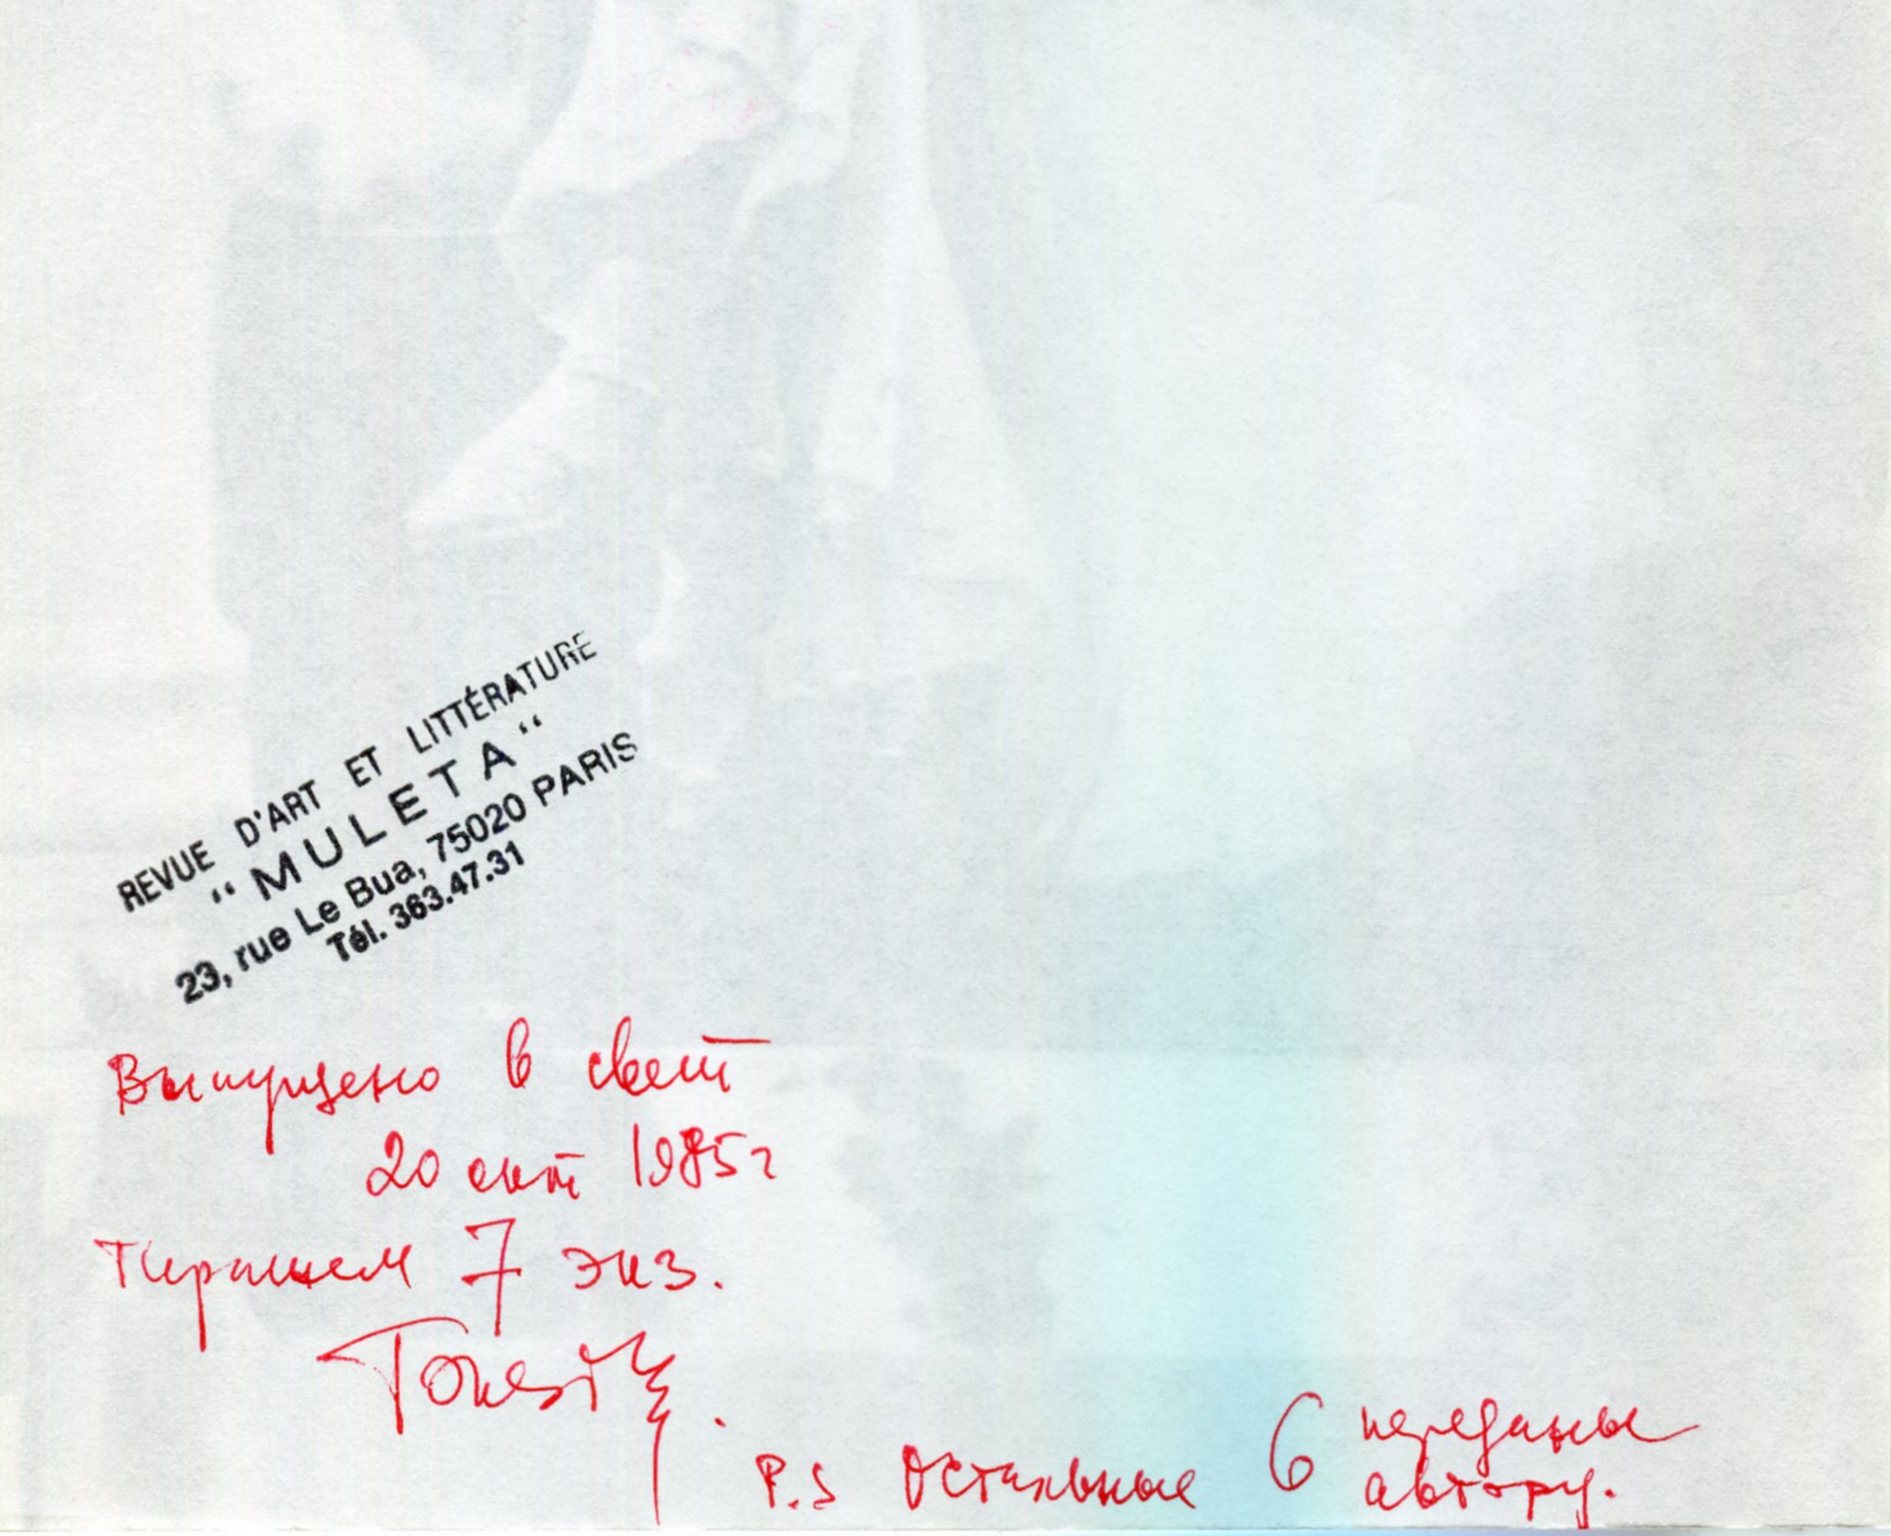 REVUE D'ART ET LITTÉRATURE
"MULETA"
23, rue Le Bua, 75020 PARIS
Tél. 363.47.31
Выпущено в свет
20 окт 1985г
Тиражем 7 экз.
P.S Остальные 6 переданы
автору.